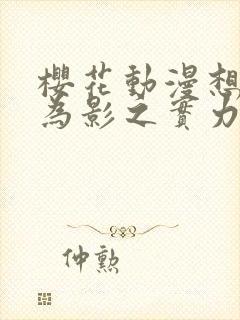 櫻花動漫想
為影之實力
仲勲